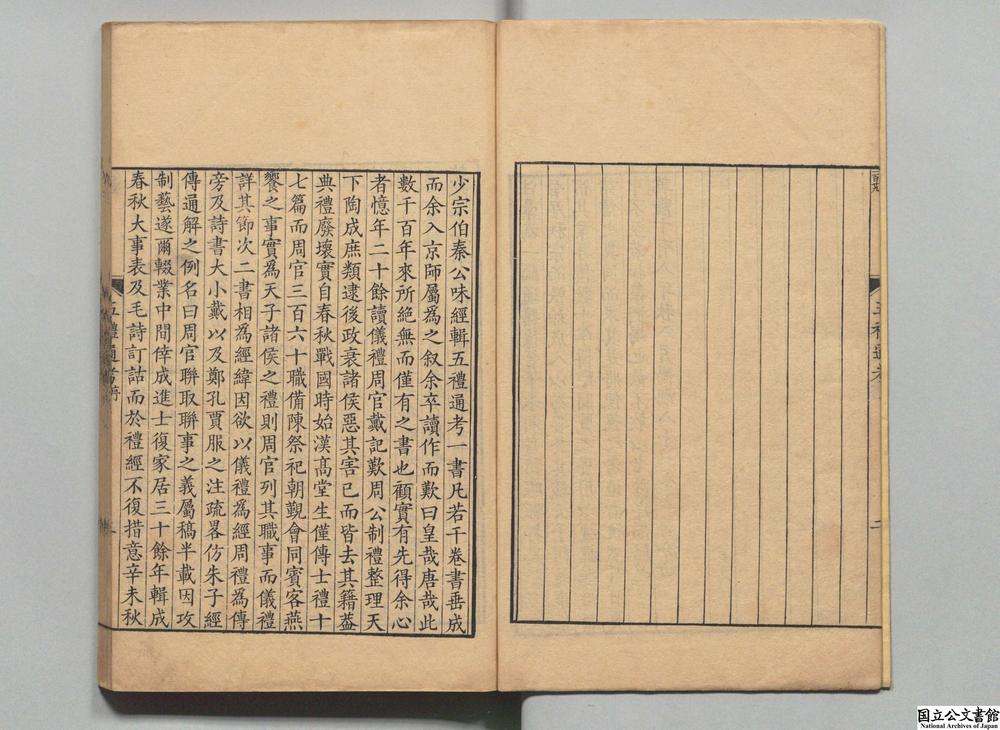 五禮通考
二
少宗伯秦公味經輯五禮通考一書凡若干卷書垂成
而余入京師屬為之叙余卒讀作而歎曰皇哉唐哉此
數千百年來所絕無而僅有之書也顧實有先得余心
者憶年二十餘讀儀禮周官戴記歎周公制禮整理天
下陶成庶類逮後政衰諸侯惡其害已而皆去其籍葢
典禮廢壞實自春秋戰國時始漢髙堂生僅傳士禮十
七篇而周官三百六十職備陳祭祀朝覲會同賓客燕
饗之事實爲天子諸侯之禮則周官列其職事而儀禮
詳其節次二書相為經緯因欲以儀禮爲經周禮為傳
旁及詩書大小戴以及鄭孔賈服之注疏畧仿朱子經
傳通解之例名曰周官聯取聯事之義屬稿半載因攻
制藝遂爾輟業中間倖成進士復家居三十餘年輯成
春秋大事表及毛詩訂詁而於禮經不復措意辛未秋
五禮通考序
国立公文書館
National Archives of Japan